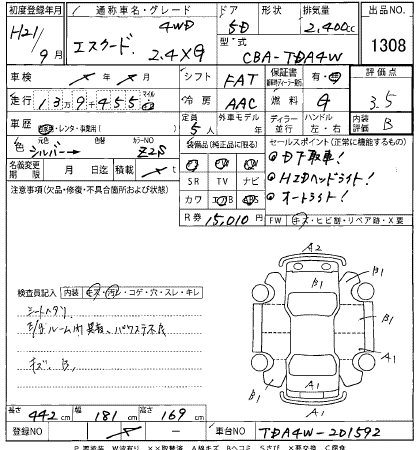 初度登録年月 通称車名・グレード ドア 形状 排気量 出品NO.
H21/9月 エスクード 4WD 2.4XG 5D 2,400cc 1308
型式 CBA-TDA4W
車検 年 月 シフト FAT 保証書 有・無 評価点
走行 139455 マイル km 冷房 AAC 燃料 G 3.5
車歴 自家・レンタ・事業用( ) 定員 5人 外車モデル年 ディーラー 並行 ハンドル 左・右 内装評価 B
色 元色 シルバー→ 色替 カラーNO Z2S
装備品(純正品に限る) セールスポイント(正常に機能するもの)
名義変更期限 月 日迄 積載 t
SR TV ナビ
カワ エアB
●D下取車!
●HIDヘッドライト!
●オートライト!
注意事項(欠品・修復・不具合箇所および状態)
R券 15,010円
FW キズ・ヒビ割・リペア跡・X要
検査員記入 内装 キズ・汚レ・コゲ・穴・スレ・キレ
シートヘタリ
E/gルーム内異音、パワステ不良
キズ、B、
A2
B1
B1
B1
A1
A1
A1
長さ 442cm 幅 181cm 高さ 169cm
登録NO 車台NO TDA4W-201592
P要塗装 W波有り XX取替済 A線キズ Bヘコミ Sさび X要交換 C腐食